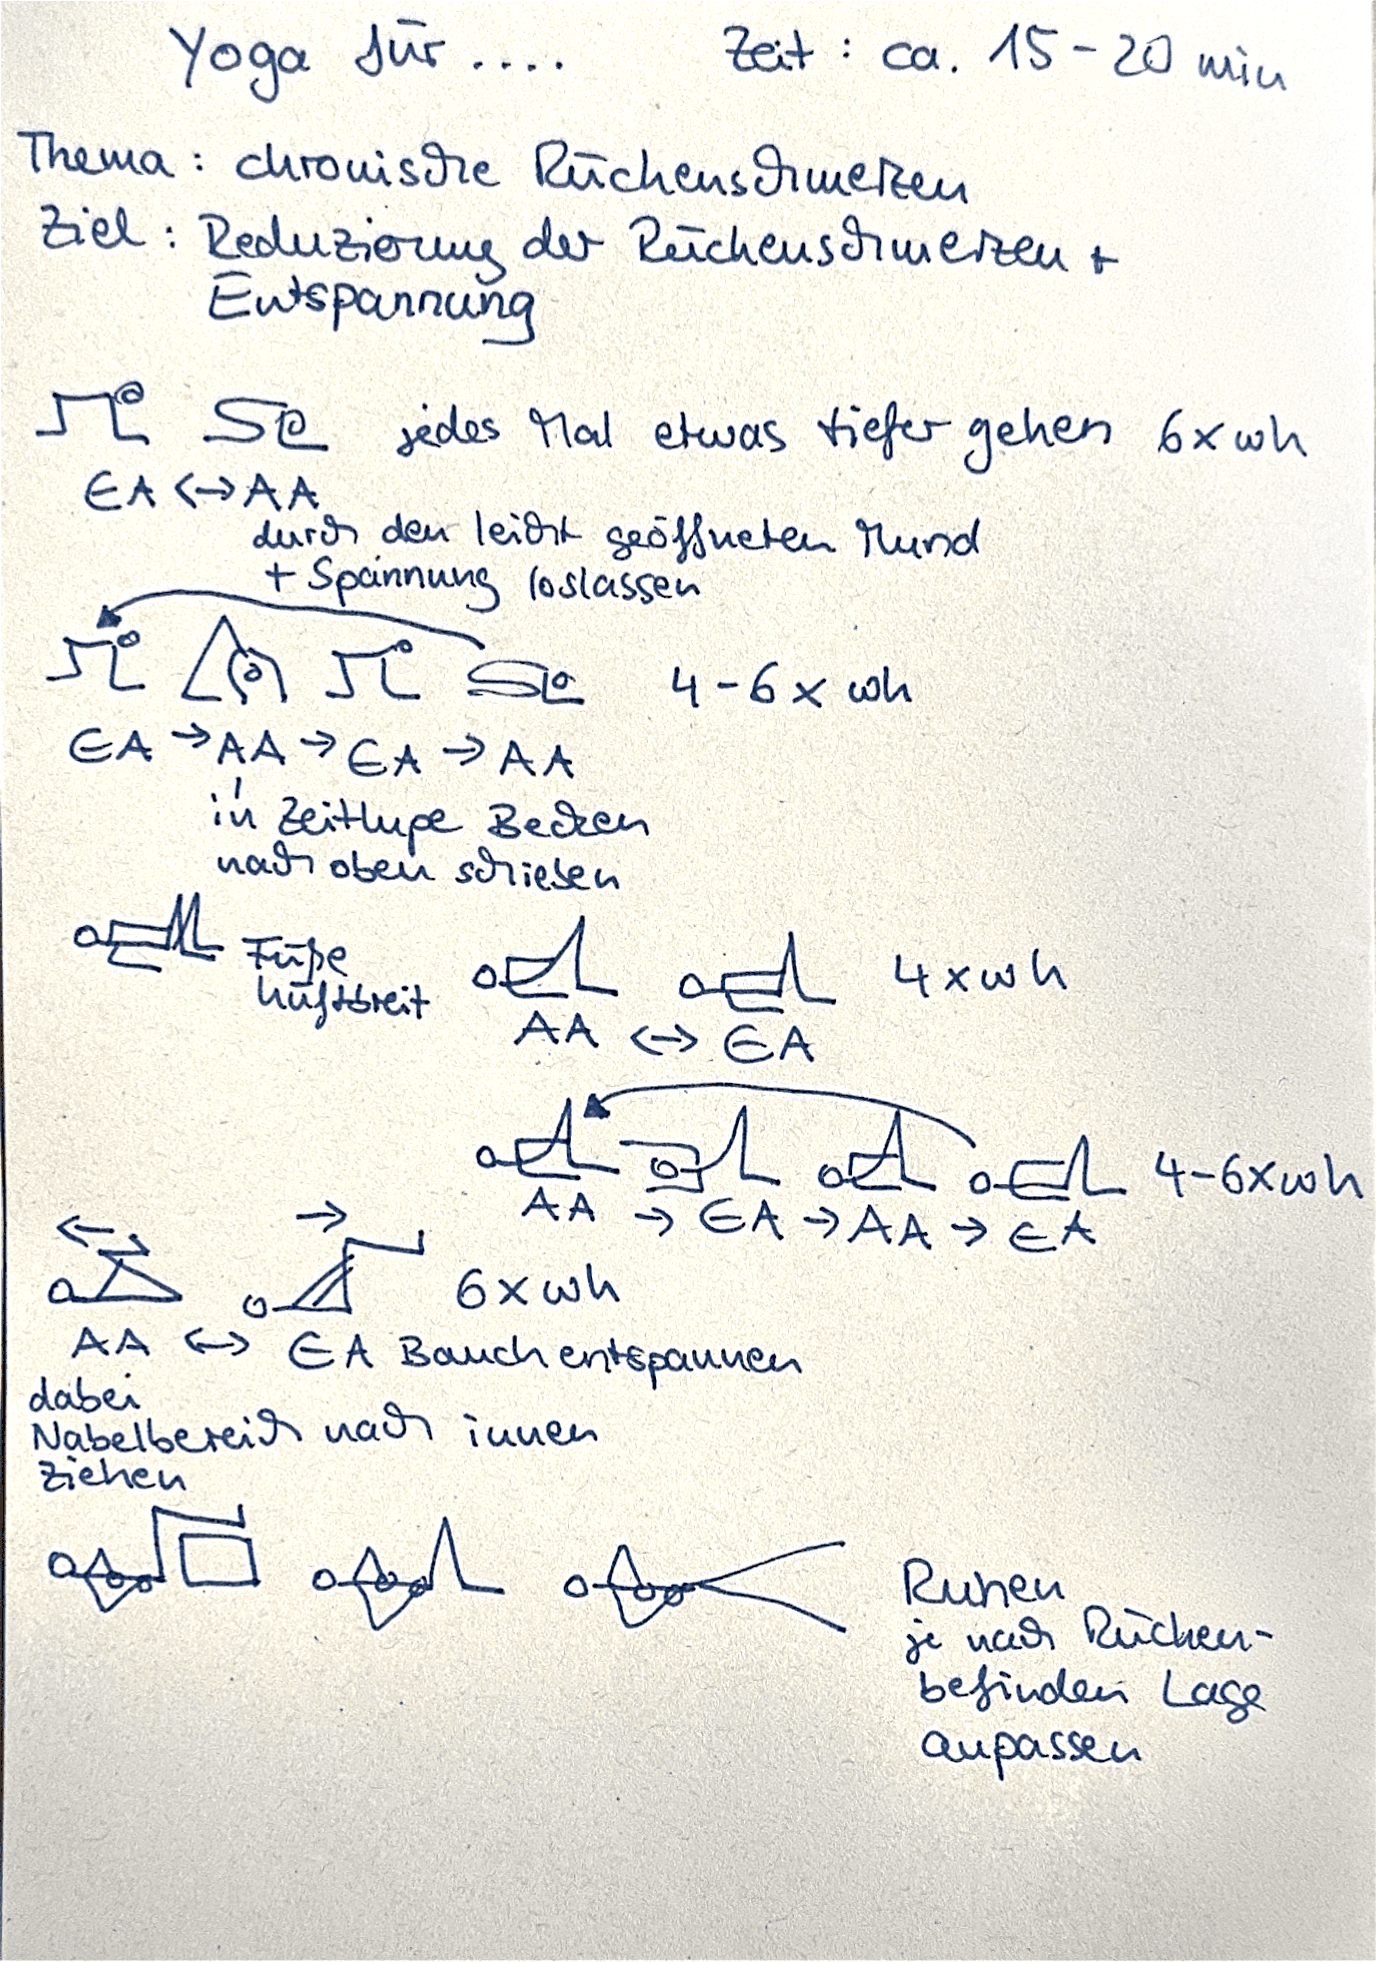 Yoga für .... Zeit : ca. 15-20 min
Thema : chronische Rückenschmerzen
Ziel : Reduzierung der Rückenschmerzen +
Entspannung
jedes Mal etwas tiefer gehen 6x wh
EA <-> AA
durch den leicht geöffneten Mund
+ Spannung loslassen
4-6 x wh
EA -> AA -> EA -> AA
in Zeitlupe Becken
nach oben schieben
Füße
hüftbreit
4 x wh
AA <-> EA
4-6x wh
AA -> EA -> AA -> EA
6 x wh
AA <-> EA Bauch entspannen
dabei
Nabelbereich nach innen
ziehen
Ruhen
je nach Rücken-
befinden Lage
anpassen